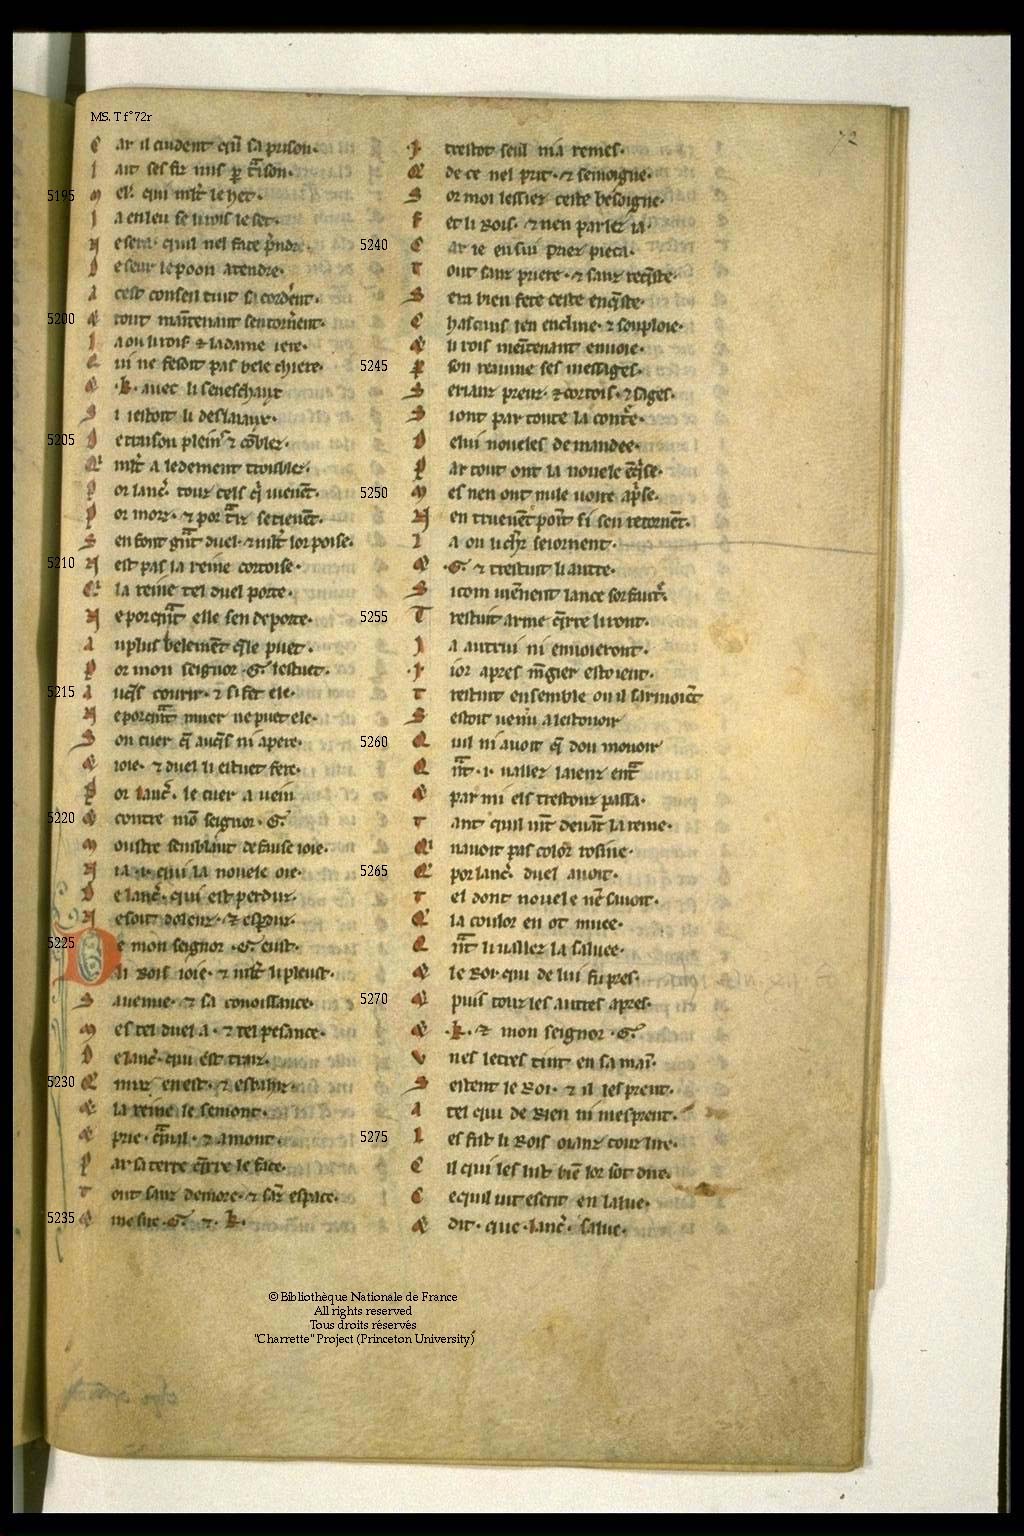 MS. T f°72r
72
C ar il cuident qͥl sa prison.
I ait ses fiz mis ꝑ traïson.
5195 M el'. qui mlt' le het.
I a en leu se li rois le set.
N e sera. quil nel face p̃ndre.
D e seur le poon atendre.
A cest conseil tuit sacordent.
5200 & tout maintenant sentornent.
I a ou li rois & la dame iere.
Q ui ne fesoit pas bele chiere.
& .k. avec li seneschaux
S i iestoit li deslaiaux.
5205 D e traison plein' ⁊ cōblez.
Q' mlt' a ledement troublez.
P or lanc̃. touz cels q̃ vienēt.
P or mort. ⁊ por traiz se tienēt.
S en font grāt duel. ⁊ mlt' lor poise.
5210 N est pas la reine cortoise.
Q' la reine tel duel porte.
N e porqͣnt elle sen deporte.
A u plus belemēt q̃le puet.
P or mon seignor .G. lestuet.
5215 A uq̃s courir. ⁊ si fet ele.
N e porqͣnt muer ne puet ele.
S on cuer q̃ auq̃s ni apere.
& ioie. ⁊ duel li estuet fere.
P or lanc̃. le cuer a vein
5220 & contre mō seignor .G.
M oustre semblant de fause ioie.
N ia .i. qui la novele oie.
D e lanc̃. qui est perduz.
N e soit dolenz. & esp̃duz.
5225 D e mon seignor .G. eust.
li Rois ioie. ⁊ mlt' li pleust.
S a venue. ⁊ sa conoissance.
M es tel duel a. ⁊ tel pesance.
D e lanc̃. qui est traiz.
5230 Q' muz en est. ⁊ esbahiz.
& la reine le semont.
& prie. q̃ aual. ⁊ amont.
P ar sa terre q̃rre le face.
T out sanz demore. ⁊ sāz espace.
5235 & me sire .G. ⁊ .k.
.I. trestot seul nia remes.
Q' de ce nel prit. ⁊ semoigne.
S or moi lessiez ceste besoigne.
F et li Rois. ⁊ nen parlez ia.
5240 C ar ie en sui priez pieca.
T out sanz priere. ⁊ sanz req̃ste.
S era bien fete ceste enq̃ste.
C hascuns len encline. ⁊ souploie.
& li rois meintenant envoie.
5245 P son reaume ses messages.
S erianz preuz. & cortois. ⁊ sages.
S iont par toute la contr̃e.
D e lui noveles demandee.
P ar tout ont la novele eq̃se.
5250 M es nen ont nule voire ap̃se.
N en truevēt poīt si sen retornēt.
I a ou li ch̃r seiornent.
& .G. ⁊ trestuit li autre.
S i com viēnent lance sor fautr̃.
5255 T restuit arme q̃rre liront.
I a autrui ni envoieront.
.I. ior apres mēgier estoient.
T restuit ensemble ou il sarmoiēt
S estoit venu a lestovoir
5260 Q uil ni avoit q̃ dou movoir
Q nͣt .i. vallez laienz entͣ
& par mi els trestouz passa.
T ant quil vīt devāt la reine.
Q' navoit pas color rosine.
5265 Q' por lanc̃. duel avoit.
T el dont novele nē savoit.
Q' la coulor en ot muee.
Q nͣt li vallez la saluee.
& le Roi. qui de lui fu pres.
5270 & puis touz les autres apres.
& .k. & mon seignor .G.
V nes letres tint en sa maī.
S es tent le Roi. ⁊ il les prent.
A tel qui de Rien ni mesprent.
5275 L es fist li Rois oianz touz lire.
C il qui les lut biē lor sot dire.
C e quil vit escrit en la lue.
& dit. que .lanc̃. salue.
© Bibliothèque Nationale de France
All rights reserved
Tous droits réservés
"Charrette" Project (Princeton University)